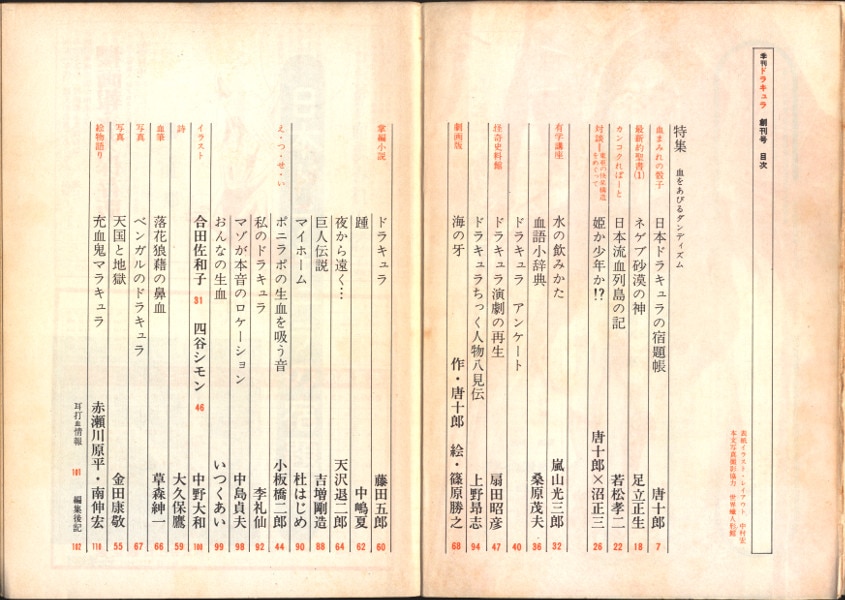 季刊ドラキュラ 創刊号 目次
表紙イラスト・レイアウト 中村宏
本文写真撮影協力 世界蠟人形館
特集 血をあびるダンディズム
血まみれの骰子 日本ドラキュラの宿題帳 唐十郎 7
最新約聖書(1) ネゲブ砂漠の神 足立正生 18
カンコクればーと 日本流血列島の記 若松孝二 22
対談― をめぐって 姫か少年か!? 唐十郎×沼正三 26
有学講座 水の飲みかた 嵐山光三郎 32
血語小辞典 桑原茂夫 36
ドラキュラ アンケート 40
怪奇史料館 ドラキュラ演劇の再生 扇田昭彦 47
ドラキュラちっく人物八見伝 上野昻志 94
劇画版 海の牙 作・唐十郎 絵・篠原勝之 68
掌編小説 ドラキュラ 藤田五郎 60
踵 中嶋夏 62
夜から遠く… 天沢退二郎 64
巨人伝説 吉増剛造 88
マイホーム 杜はじめ 90
え・つ・せ・い ポニラボの生血を吸う音 小板橋二郎 44
私のドラキュラ 李礼仙 92
マゾが本音のロケーション 中島貞夫 98
おんなの生血 いつくあい 99
イラスト 合田佐和子 31 四谷シモン 46 中野大和 100
詩 大久保鷹 59
血筆 落花狼藉の鼻血 草森紳一 66
写真 ベンガルのドラキュラ 67
写真 天国と地獄 金田康敬 55
絵物語り 充血鬼マラキュラ 赤瀬川原平・南伸宏 110
耳打血情報 101 編集後記 102